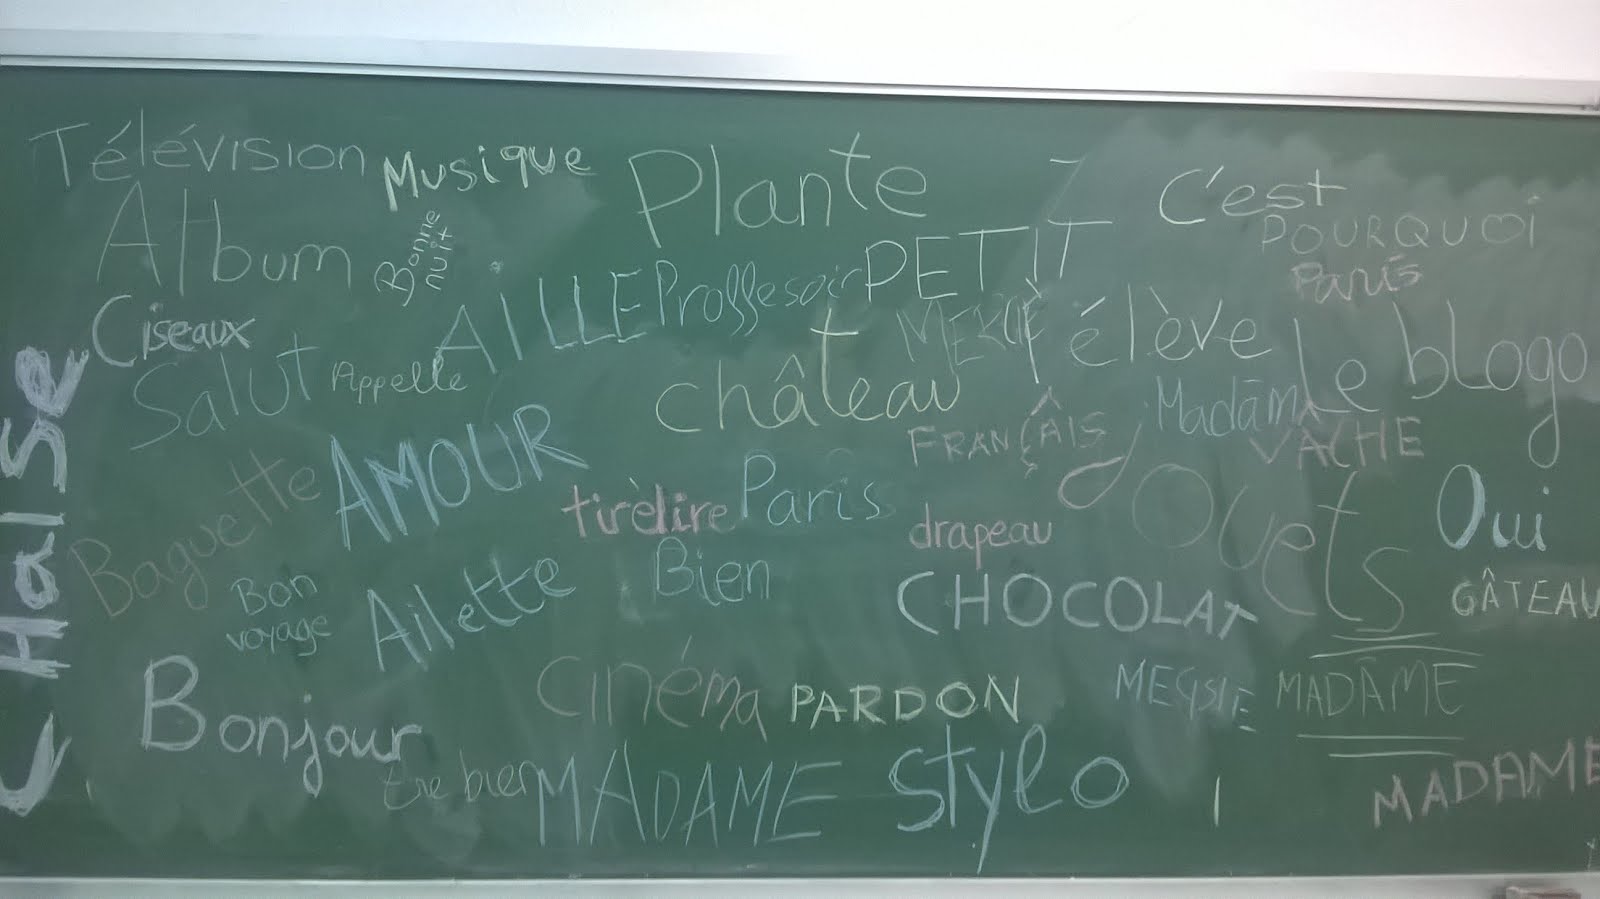 Télévision
Musique
Plante
C'est
POURQUOI
Paris
Album
Bonne
nuit
AILLE
Proffesoir
PETIT
Ciseaux
élève
Le blogo
Salut
Appelle
château
Madām
FRANÇÂIS
VACHE
CHaiSe
AMOUR
Baguette
tirèlire
Paris
drapeau
Oui
Bien
Bon
voyage
Ailette
CHOCOLAT
GÂTEAU
Bonjour
cinéma
PARDON
MADÂME
MADAME
Stylo
MADAME